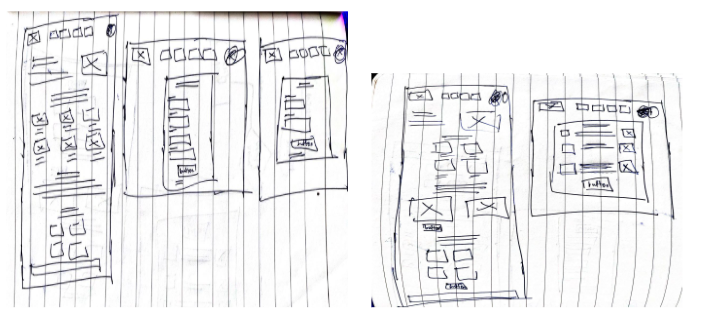 button
button
button
button
button